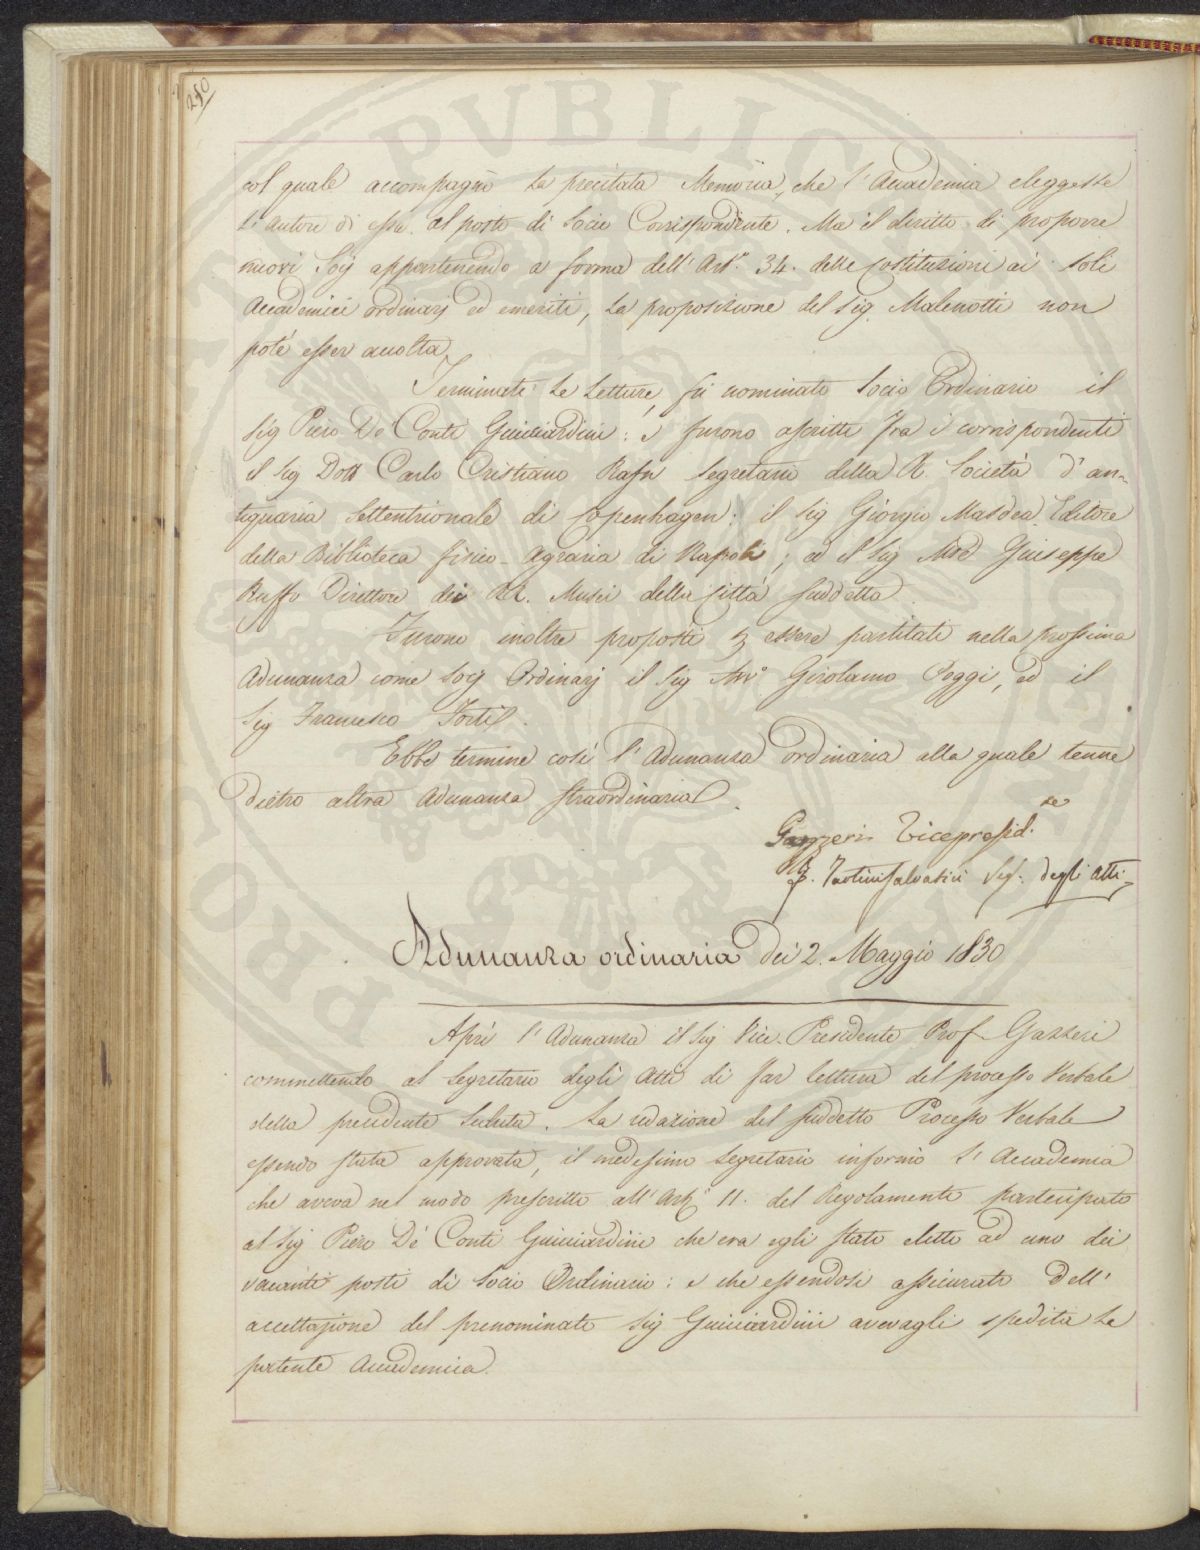 210
col quale accompagnò la precitata Memoria, che l'Accademia eleggesse
l'autore di essa al posto di Socio Corrispondente. Ma il diritto di proporre
nuovi Socj appartenendo a forma dell'Art.° 34. delle Costituzioni ai soli
Accademici ordinarj ed emeriti, la proposizione del Sig. Malenotti non
potè esser accolta.
Terminate le Letture, fu nominato Socio Ordinario il
Sig Piero De' Conti Guicciardini: e furono ascritti fra i corrispondenti
il Sig Dott Carlo Cristiano Rafn Segretario della R. Società d'an-
tiquaria Settentrionale di Copenhagen; il Sig Giorgio Masdea Editore
della Biblioteca fisico-agraria di Napoli; ed il Sig Giuseppe
Ruffo Direttore dei RR. Musei della Città suddetta.
Furono inoltre proposti per essere partitati nella prossima
Adunanza come Socj Ordinarj il Sig Avv° Girolamo Poggi, ed il
Sig Francesco Forti.
Ebbe termine così l'Adunanza ordinaria alla quale tenne
dietro altra Adunanza straordinaria.
Gazzeri Vicepresid.te
F. Tartini Salvatici Seg: degli Atti
Adunanza ordinaria dei 2. Maggio 1830
Aprì l'Adunanza il Sig Vice-Presidente Prof Gazzeri
commettendo al Segretario degli Atti di far lettura del processo Verbale
della precedente Seduta. La redazione del suddetto Processo Verbale
essendo stata approvata, il medesimo Segretario informò l'Accademia
che aveva nel modo prescritto all'Art° 11. del Regolamento partecipato
al Sig Piero De' Conti Guicciardini che era egli stato eletto ad uno dei
vacanti posti di Socio Ordinario: e che essendosi assicurato dell'
accettazione del prenominato Sig Guicciardini avevagli spedita la
patente Accademica.
PVBLIC